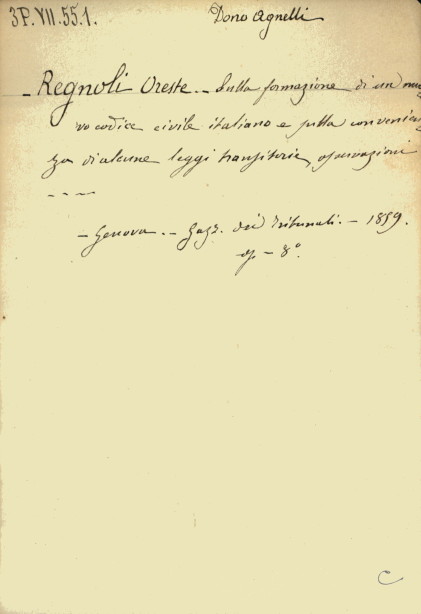 3P.VII.55.1.
Dono Agnelli
- Regnoli Oreste. - Sulla formazione di un nuo
vo codice civile italiano e sulla convenien
za di alcune leggi transitorie, osservazioni
----
- Genova. - Gazz. dei Tribunali. - 1859.
op. - 8°.
C